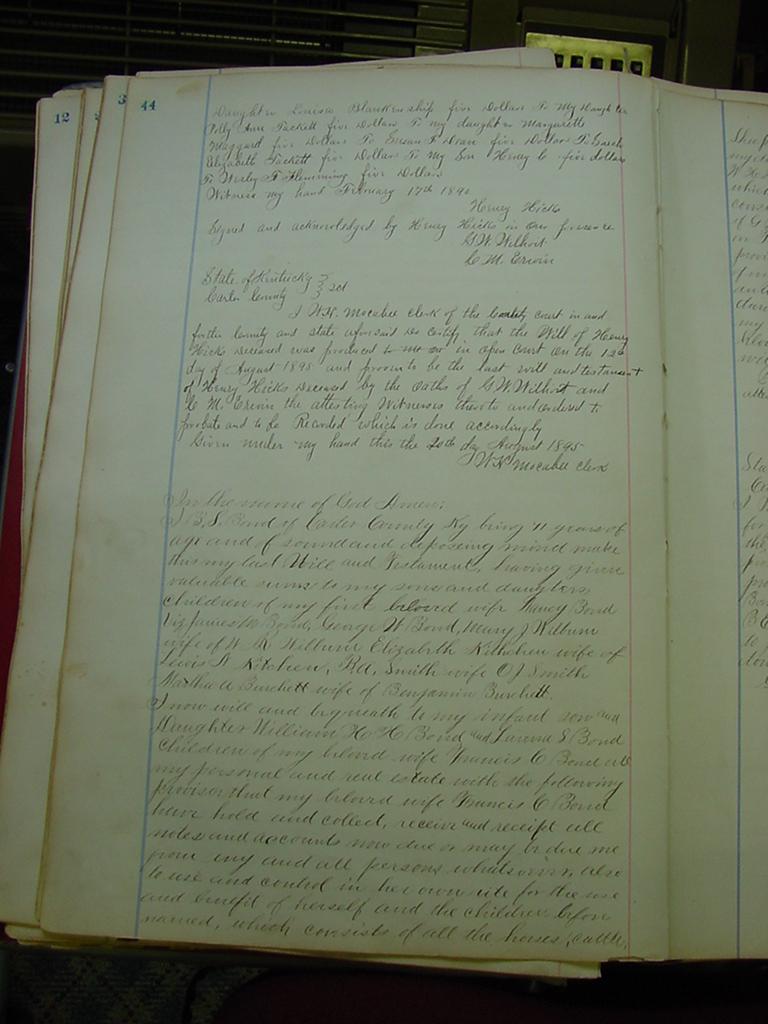 12
3
44
Daughter Louisa Blankenship five Dollars To My Daughter
Polly Ann Tackett five Dollars To my daughter Margarett
Maggard five Dollars To Susan F Dean five Dollars To Sarah
Elizabeth Tackett five Dollars To My Son Henry C five dollars
To Wesley F Flemming five Dollars
Witness my hand February 17th 189
Henry Hicks
Signed and acknowledged by Henry Hicks in our presence
G W Wilhoit
C. M. Erwin
State of Kentucky
Carter County } Sct
I W.H. Mocabee clerk of the County court in and
for the County and state aforesaid do certify that the Will of Henry
Hicks Deceased was produced in open court on the 12th
day of August 1895 and proven to be the last will and testament
of Henry Hicks Deceased by the oaths of G W Wilhoit and
C M. Erwin the attesting Witnesses thereto and ordered to
probate and to be Recorded which is done accordingly
Given under my hand this the 20th day August 1895
W H Mocabee clerk
In the name of God Amen:
I B. S. Bond of Carter County Ky being 71 years of
age and of sound and disposing mind make
this my last Will and Testament, having given
valuable sums to my sons and daughters,
children of my first beloved wife Nancy Bond
Viz James M Bond, George W Bond, Mary J Wilburn
wife of W R Wilburn Elizabeth Kitchen wife of
Lewis N Kitchen, R.A. Smith wife O J Smith
Martha A Burchett wife of Benjamin Burchett.
I now will and bequeath to my infant son and
Daughter William H H Bond and S Bond
children of my beloved wife Francis C Bond all
my personal and real estate with the following
provisor that my beloved wife Francis C Bond
have hold and collect, receive and receipt all
notes and accounts now due or may be due me
from any and all persons whatsoever, also
to use and control in her own rite for the use
and benefit of herself and the children before
named, which consists of all the horses, cattle,